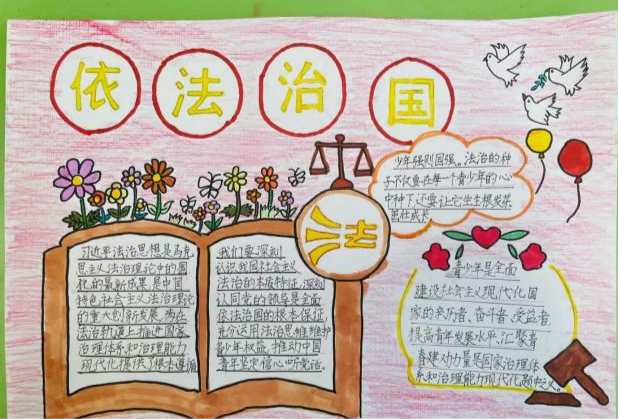 依法治国
少年强则国强。法治的种
子不仅要在每一个青少年的心
中种下还要让它生根发芽
茁壮成长
法
习近平法治思想是马克
思主义法治理论中的国
化的最新成果,是中国
特色社会主义法治理论
的重大创新发展,为在
法治轨道上推进国家
治理体系和治理能力
现代化提供了根本遵循
我们要深刻
认识我国社会主义
法治的本质特征,深刻
认同党的领导是全面
依法治国的根本保证,
充分运用法治思维维护
青少年权益,推动中国
青年坚定信心听党话。
青少年是全面
建设社会主义现代化国
家的亲历者、奋斗者、受益者,
提高青年发展水平,汇聚青
春建功力量是国家治理体
系和治理能力现代化题中之义。